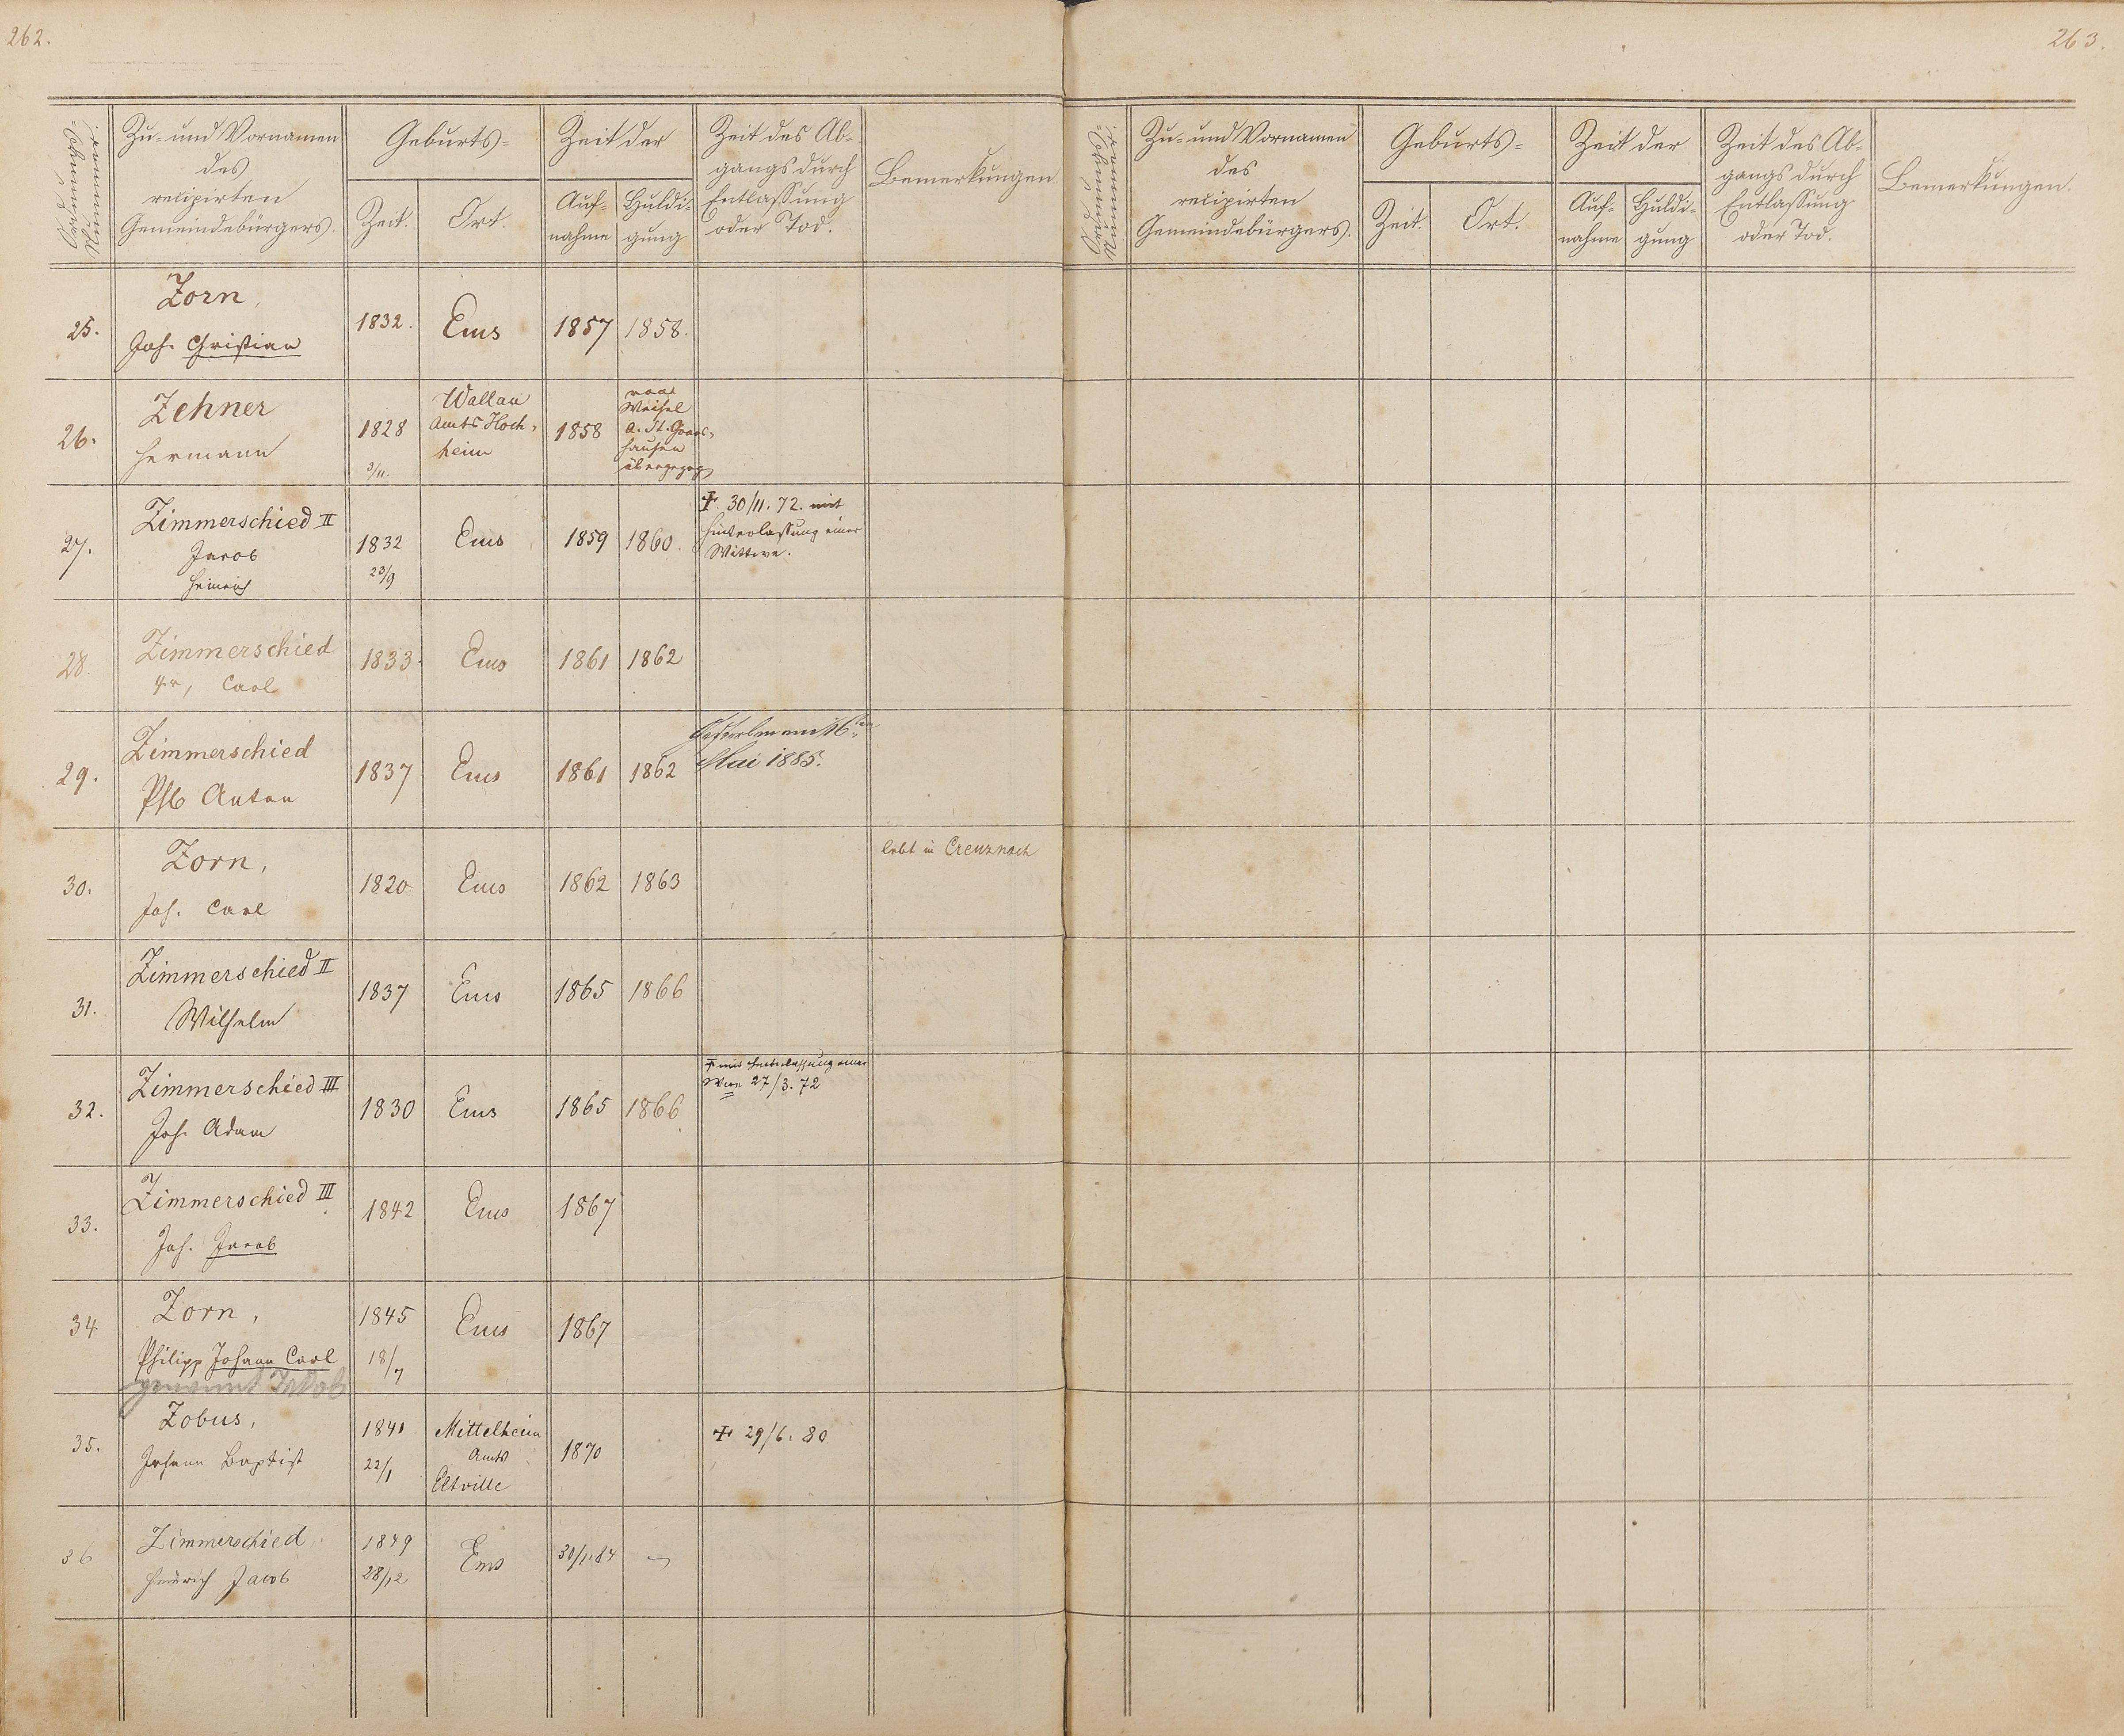 262.
Ordnungs-
Nummer.
Zu- und Vornamen
des
recipirten
Gemeindebürgers.
Geburts-
Zeit.
Ort.
Zeit der
Auf-
nahme
Huldi-
gung
Zeit des Ab-
gangs durch
Entlassung
oder Tod.
Bemerkungen.
25.
Zorn,
Joh. Christian
1832.
Ems
1857
1858.
26.
Zehner
Hermann
1828
3/11.
Wallau
Amts Hoch-
heim
1858
Weisel
A. St. Goars-
hausen
27.
Zimmerschied II
Jacob
Heinrich
1832
23/9
Ems
1859
1860.
†. 30/11. 72. mit
Hinterlassung einer
Wittwe.
28.
Zimmerschied
Carl
1833.
Ems
1861
1862
29.
Zimmerschied
Phil Anton
1837
Ems
1861
1862
Gestorben am 16ten
Mai 1885.
30.
Zorn,
Joh. Carl
1820
Ems
1862
1863
lebt in Creuznach
31.
Zimmerschied II
Wilhelm
1837
Ems
1865
1866
32.
Zimmerschied III
Joh. Adam
1830
Ems
1865
1866
† mit Hinterlassung einer
27/3. 72
33.
Zimmerschied III
Joh. Jacob
1842
Ems
1867
34
Zorn,
Philipp Johann Carl
genannt Jacob
1845
18/7
Ems
1867
35.
Zobus,
Johann Baptist
1841
22/1
Mittelheim
Amts
Eltville
1870
† 29/6. 80
36
Zimmerschied
Heinrich Jacob
1849
28/12
Ems
30/1. 84
—
263.
Ordnungs-
Nummer.
Zu- und Vornamen
des
recipirten
Gemeindebürgers.
Geburts-
Zeit.
Ort.
Zeit der
Auf-
nahme
Huldi-
gung
Zeit des Ab-
gangs durch
Entlassung
oder Tod.
Bemerkungen.